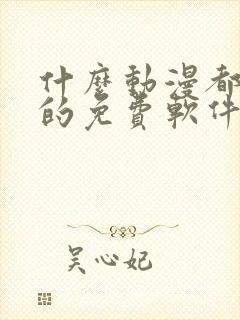 什麼動漫都
的免費軟件
吴心妃